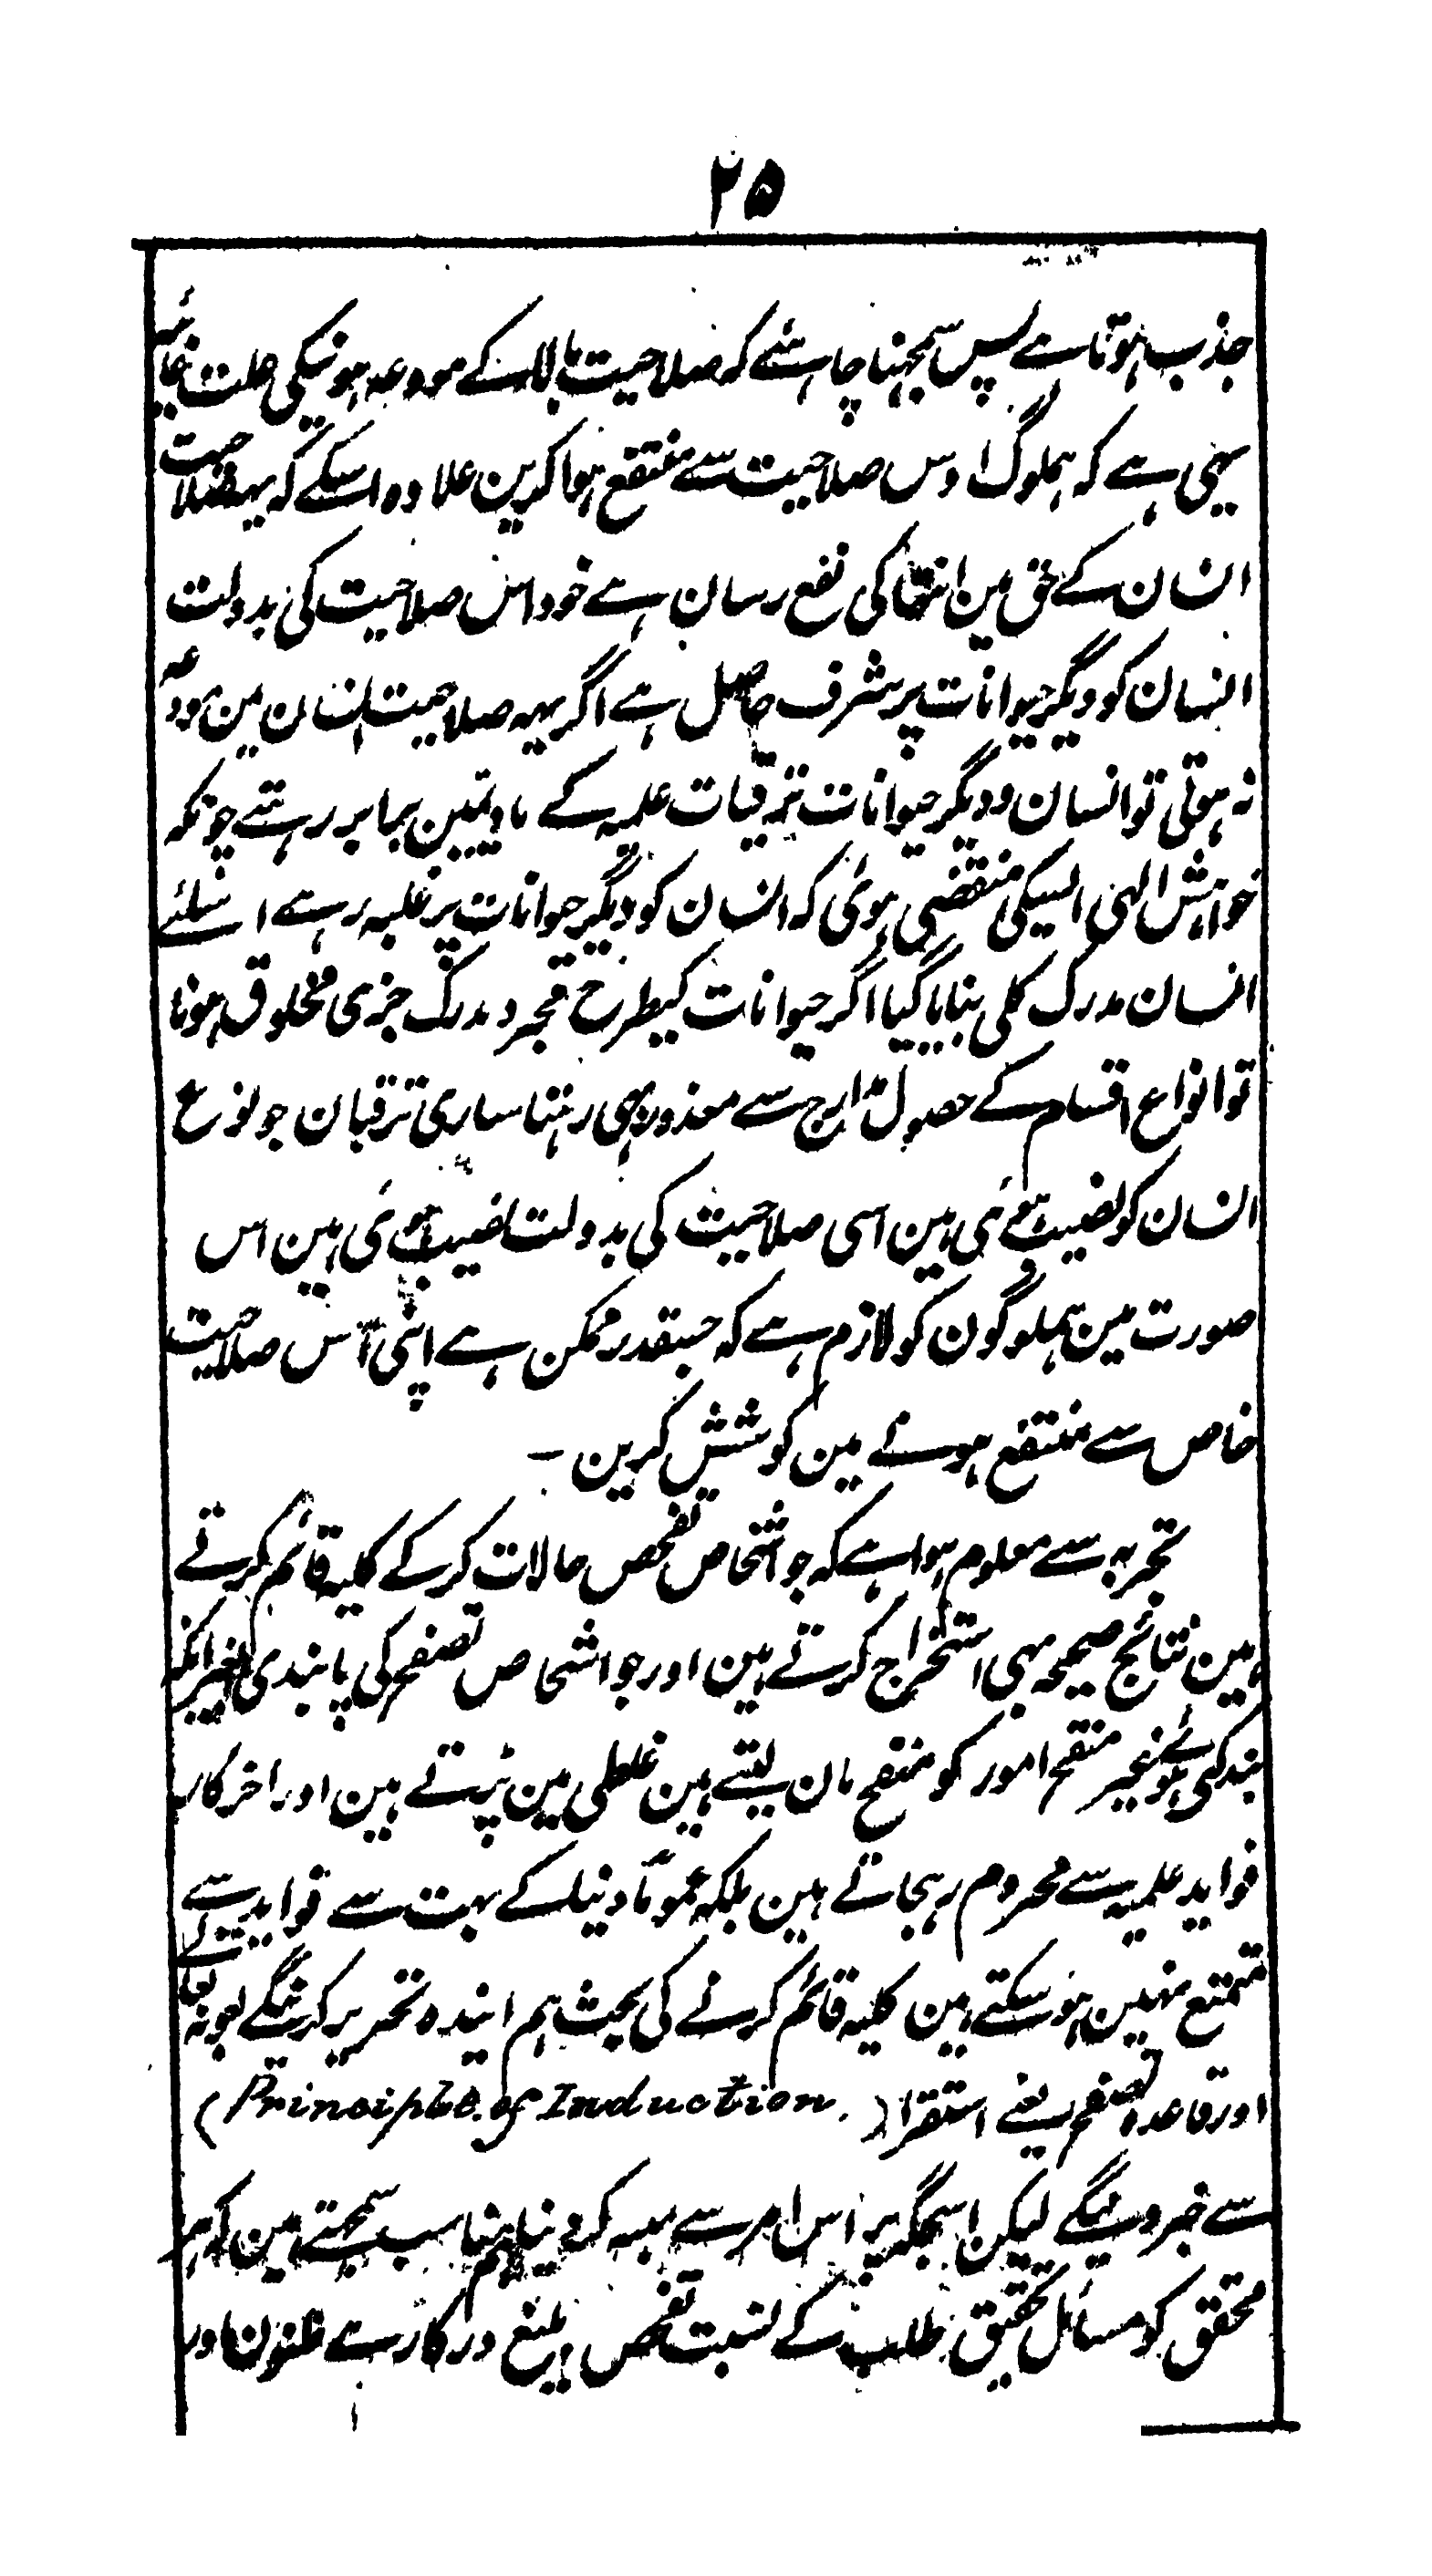 ۲۵
جذب ہوتا ہے پس سمجہنا چاہئے کہ صلاحیت بالا کے مودعہ ہونیکی علت غائیہ
یہی ہے کہ ہملوگ اوس صلاحیت سے منتفع ہوا کرین علاوہ اسکے کہ یہہ صلاحیت
انسان کے حق مین انتہا کی نفع رسان ہے خود اس صلاحیت کی بدولت
انسان کو دیگر حیوانات پر شرف حاصل ہے اگر یہہ صلاحیت انسان مین مودعہ
نہ ہوتی تو انسان و دیگر حیوانات ترقیات علمیہ کے مادیمین برابر رہتے چونکہ
خواہش الہی اسیکی منقضی ہوئی کہ انسان کو دیگر حیوانات پر غلبہ رہے اسلئے
انسان مدرک کلی بنایا گیا اگر حیوانات کیطرح مجرد مدرک جزی مخلوق ہوتا
تو انواع اقسام کے حصول مدارج سے معذور بہی رہتا ساری ترقیان جو نوع
انسان کو نصیب ہوئی ہین اسی صلاحیت کی بدولت نصیب ہوئی ہین اس
صورت مین ہملوگون کو لازم ہے کہ جسقدر ممکن ہے اپنی اس صلاحیت
خاص سے منتفع ہونے مین کوشش کرین ۔
تجربہ سے معلوم ہوا ہے کہ جو اشخاص تفحص حالات کرکے کلیہ قائم کرتے
ہین نتائج صحیحہ بہی استخراج کرتے ہین اور جو اشخاص تصفح کی پابندی بغیر انکہ
بند کئے ہوئے غیر منقح امور کو منقح مان لیتے ہین غلطی مین پڑتے ہین اور اخر کار
فواید علمیہ سے محروم رہجاتے ہین بلکہ عموماً دنیا کے بہت سے فواید سے
متمتع نہین ہو سکتے ہین کلیہ قائم کرنے کی بحث ہم ایندہ تحریر کرینگے بعونہ تعالے
اور قاعدہ تصفح یعنے استقرا (Principle of Induction.)
سے خبر دینگے لیکن اسجگہہ پر اس امر سے متنبہ کر دینا ہم مناسب سمجہتے ہین کہ ہر
محقق کو مسائل تحقیق طلب کے نسبت تفحص بلیغ درکار ہے ظنون اور